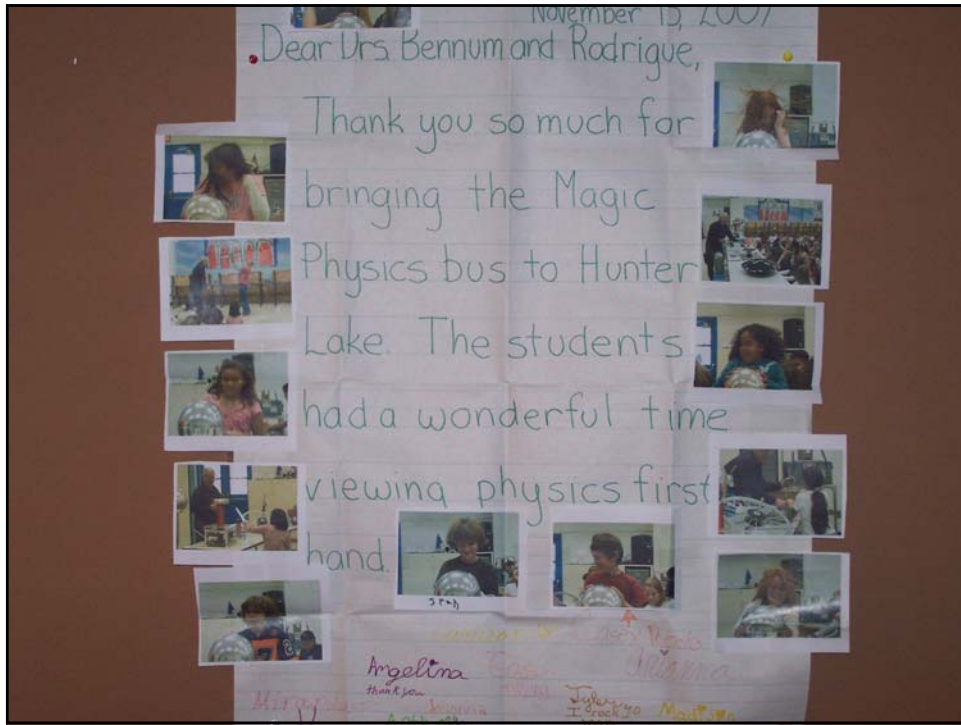 November 15, 2007
Dear Drs. Bennum and Rodrigue,
Thank you so much for
bringing the Magic
Physics bus to Hunter
Lake. The students
had a wonderful time
viewing physics first
hand.
Sean
Angelina
thank you
Arianna
Tyler yo
I rock yo
Madison